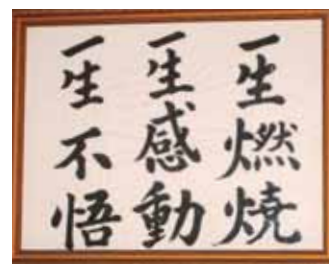 一生燃焼
一生感動
一生不悟